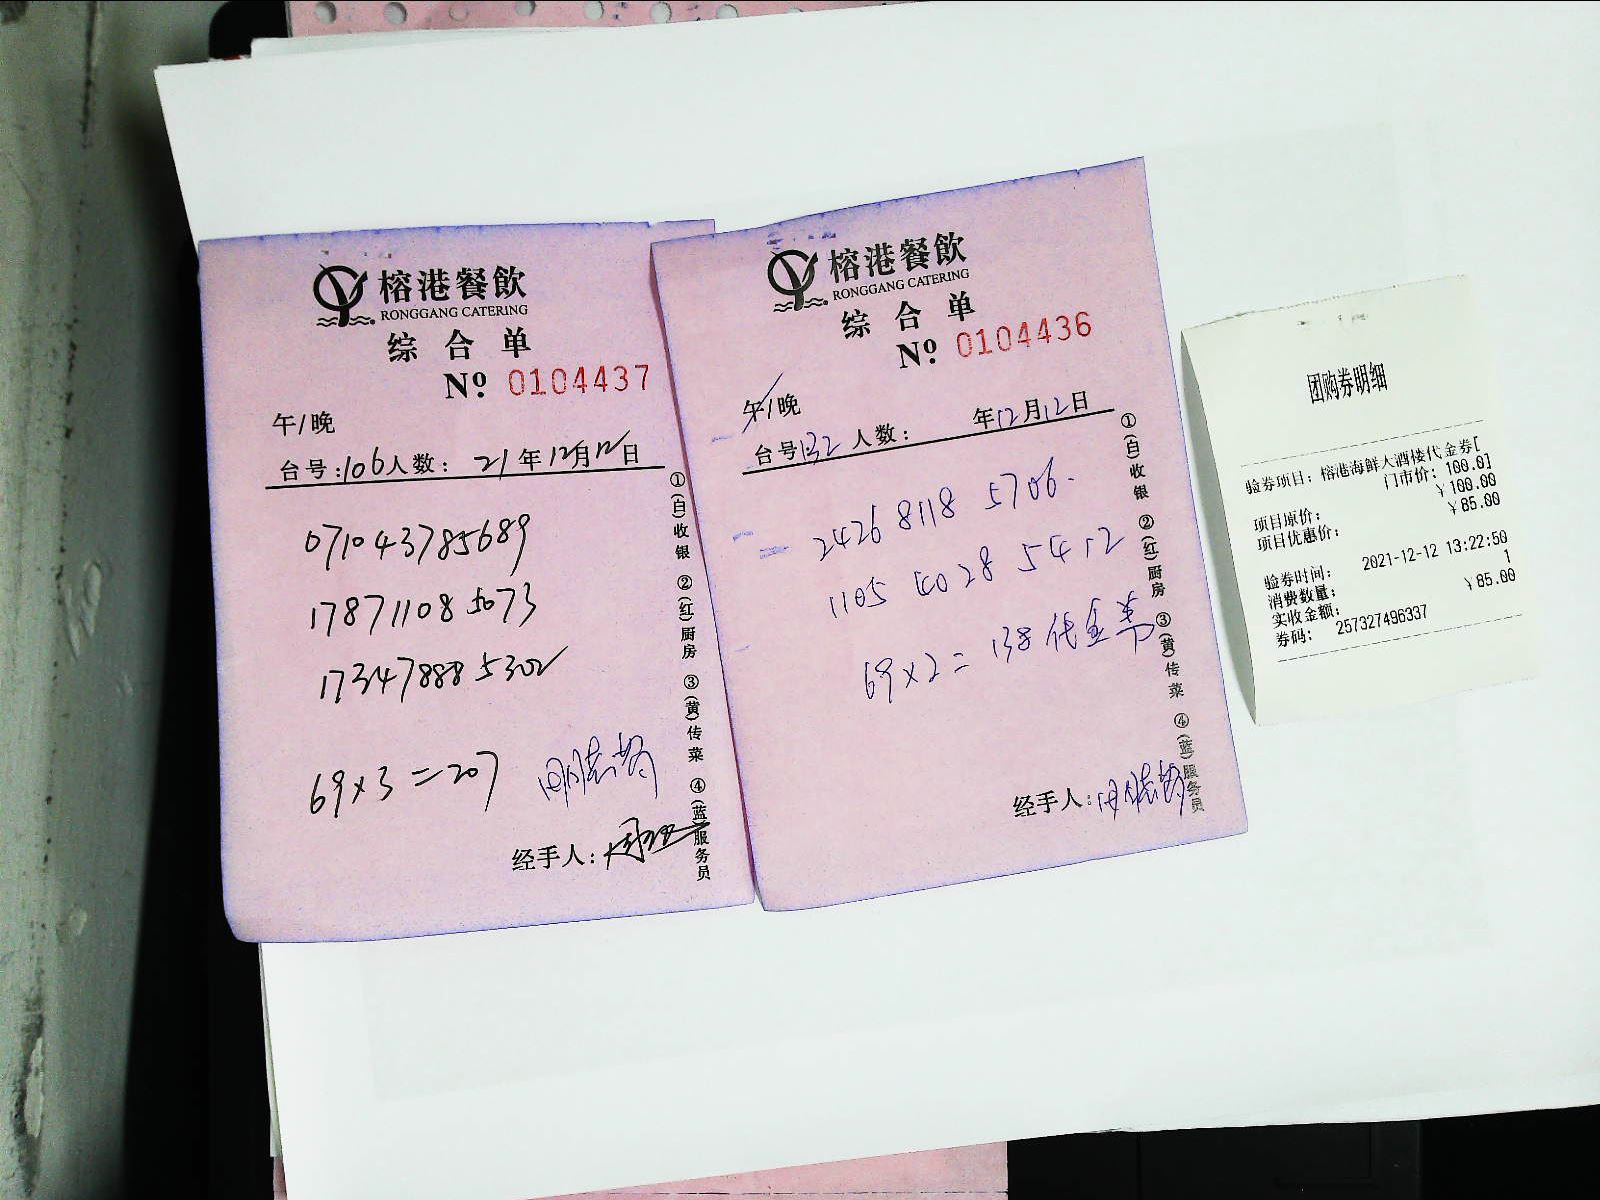 榕港餐飲
RONGGANG CATERING
综合单
Nº 0104437
午/晚
台号:106人数: 21年12月12日
071043785689
178711085073
173478885302
69×3=207
经手人:
①(白)收银 ②(红)厨房 ③(黄)传菜 ④(蓝)服务员
榕港餐飲
RONGGANG CATERING
综合单
Nº 0104436
午/晚
台号132人数: 年12月12日
2426 8118 5706.
1105 4028 5412
69×2=138代金券
经手人:
①(白)收银 ②(红)厨房 ③(黄)传菜 ④(蓝)服务员
团购券明细
验券项目: 榕港海鲜大酒楼代金券[
门市价: 100.0]
项目原价: ¥100.00
项目优惠价: ¥85.00
验券时间: 2021-12-12 13:22:50
消费数量: 1
实收金额: ¥85.00
券码: 257327496337